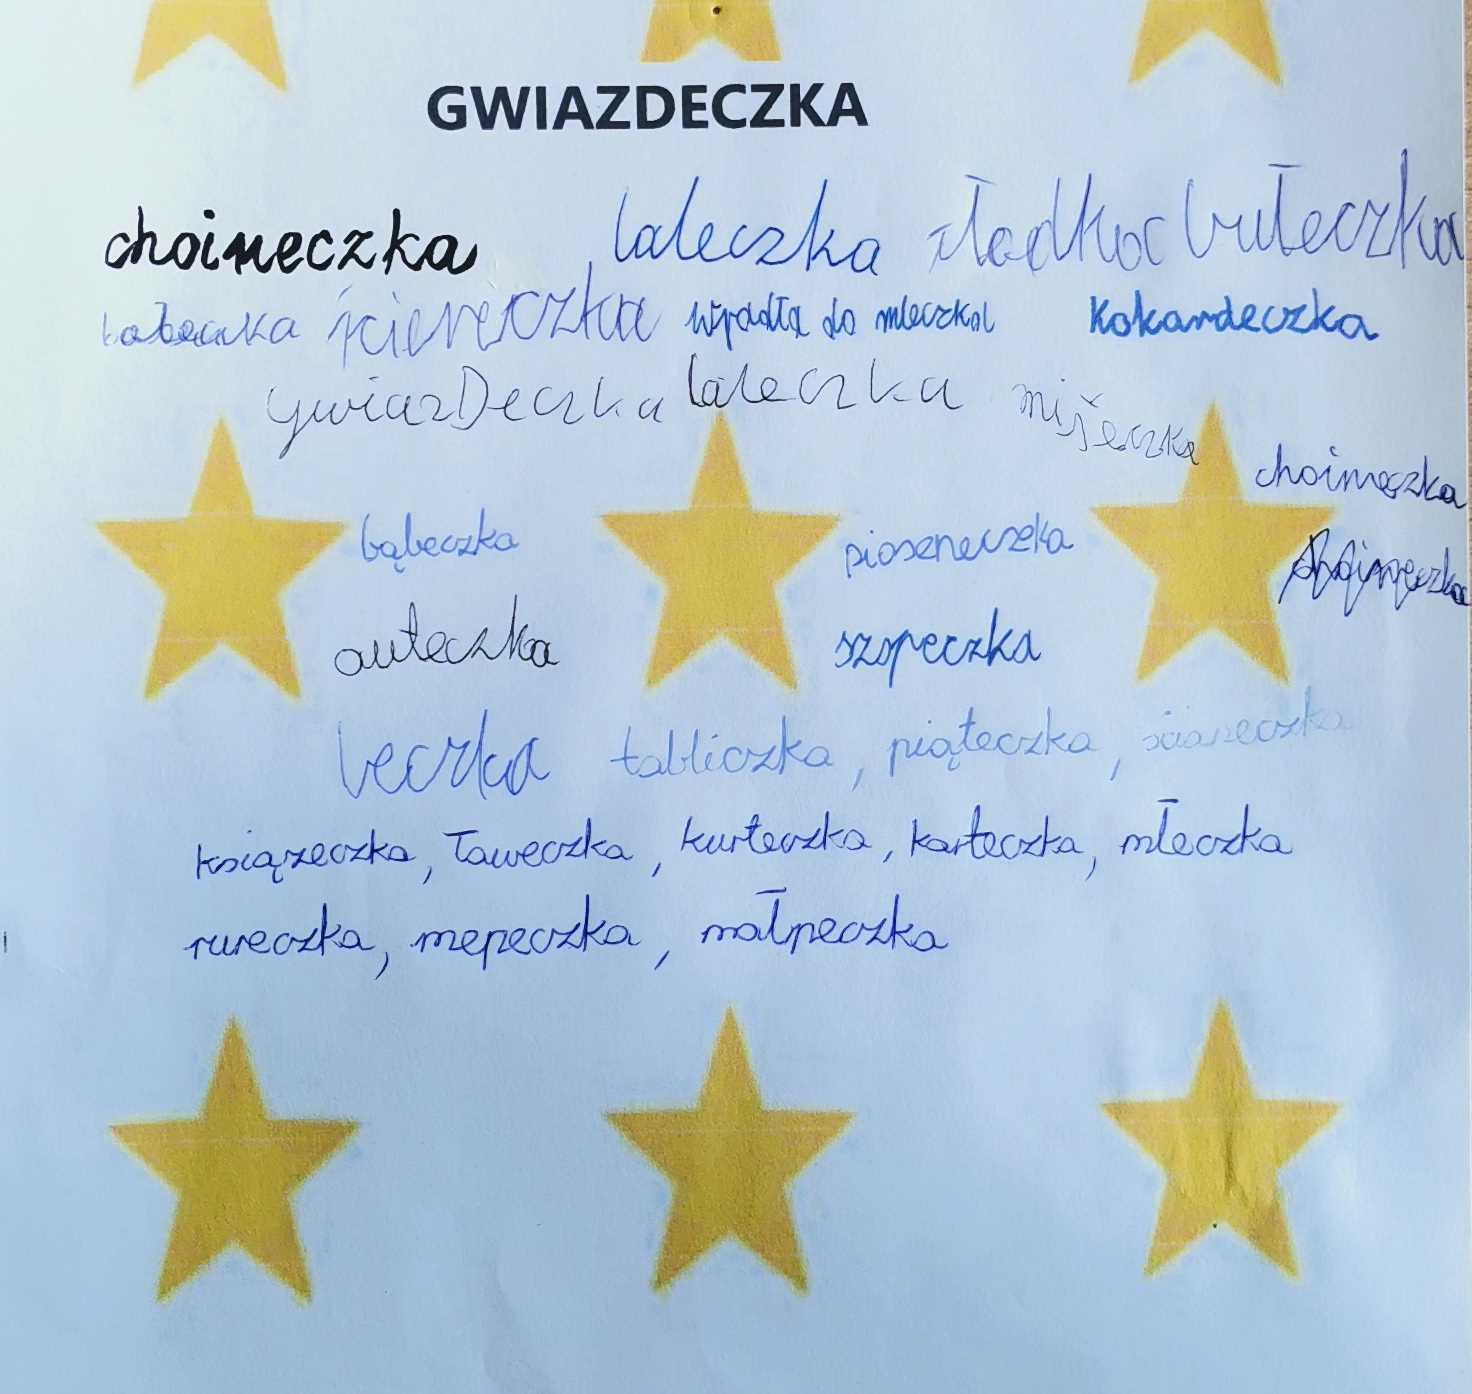 GWIAZDECZKA
choineczka laleczka słodka bułeczka
ściereczka wpadła do mleczka kokardeczka
gwiazDeczka laleczka miseczka
choineczka
bąbeczka pioseneczka
auteczka szopeczka
beczka tabliczka, piąteczka, ścianeczka
książeczka, ławeczka, kurteczka, karteczka, młeczka
rureczka, mepeczka, małpeczka